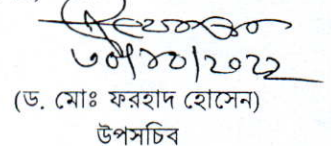 ৩০/১০/২০২২
(ড. মোঃ ফরহাদ হোসেন)
উপসচিব